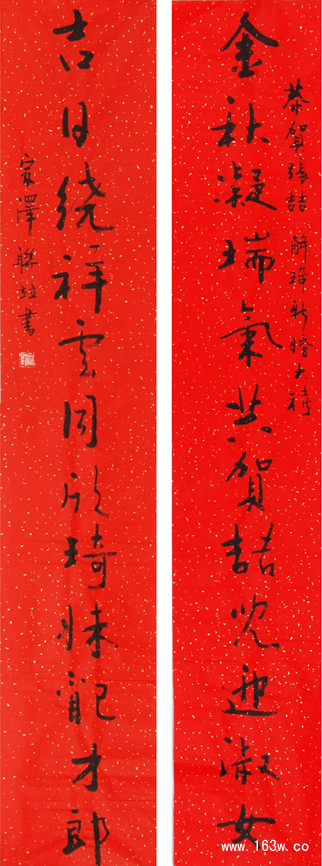 恭賀張喆 解琦新婚大禧
金秋凝瑞氣共賀喆兄迎淑女
吉日绕祥云同欣琦妹配才郎
宗澤 聯並書
www.163w.co